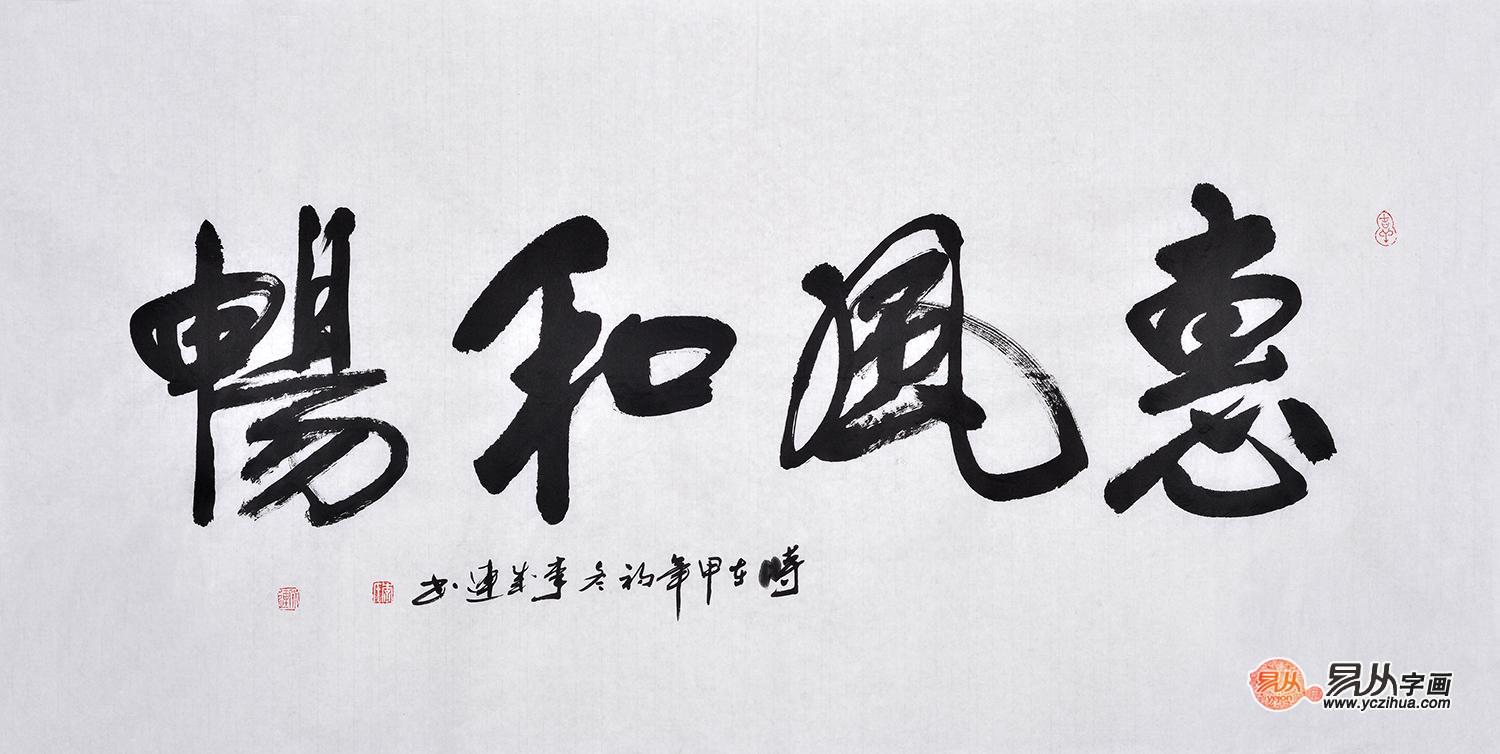 惠風和暢
時在甲年初冬李成連书
易从
易从字画
www.yczihua.com